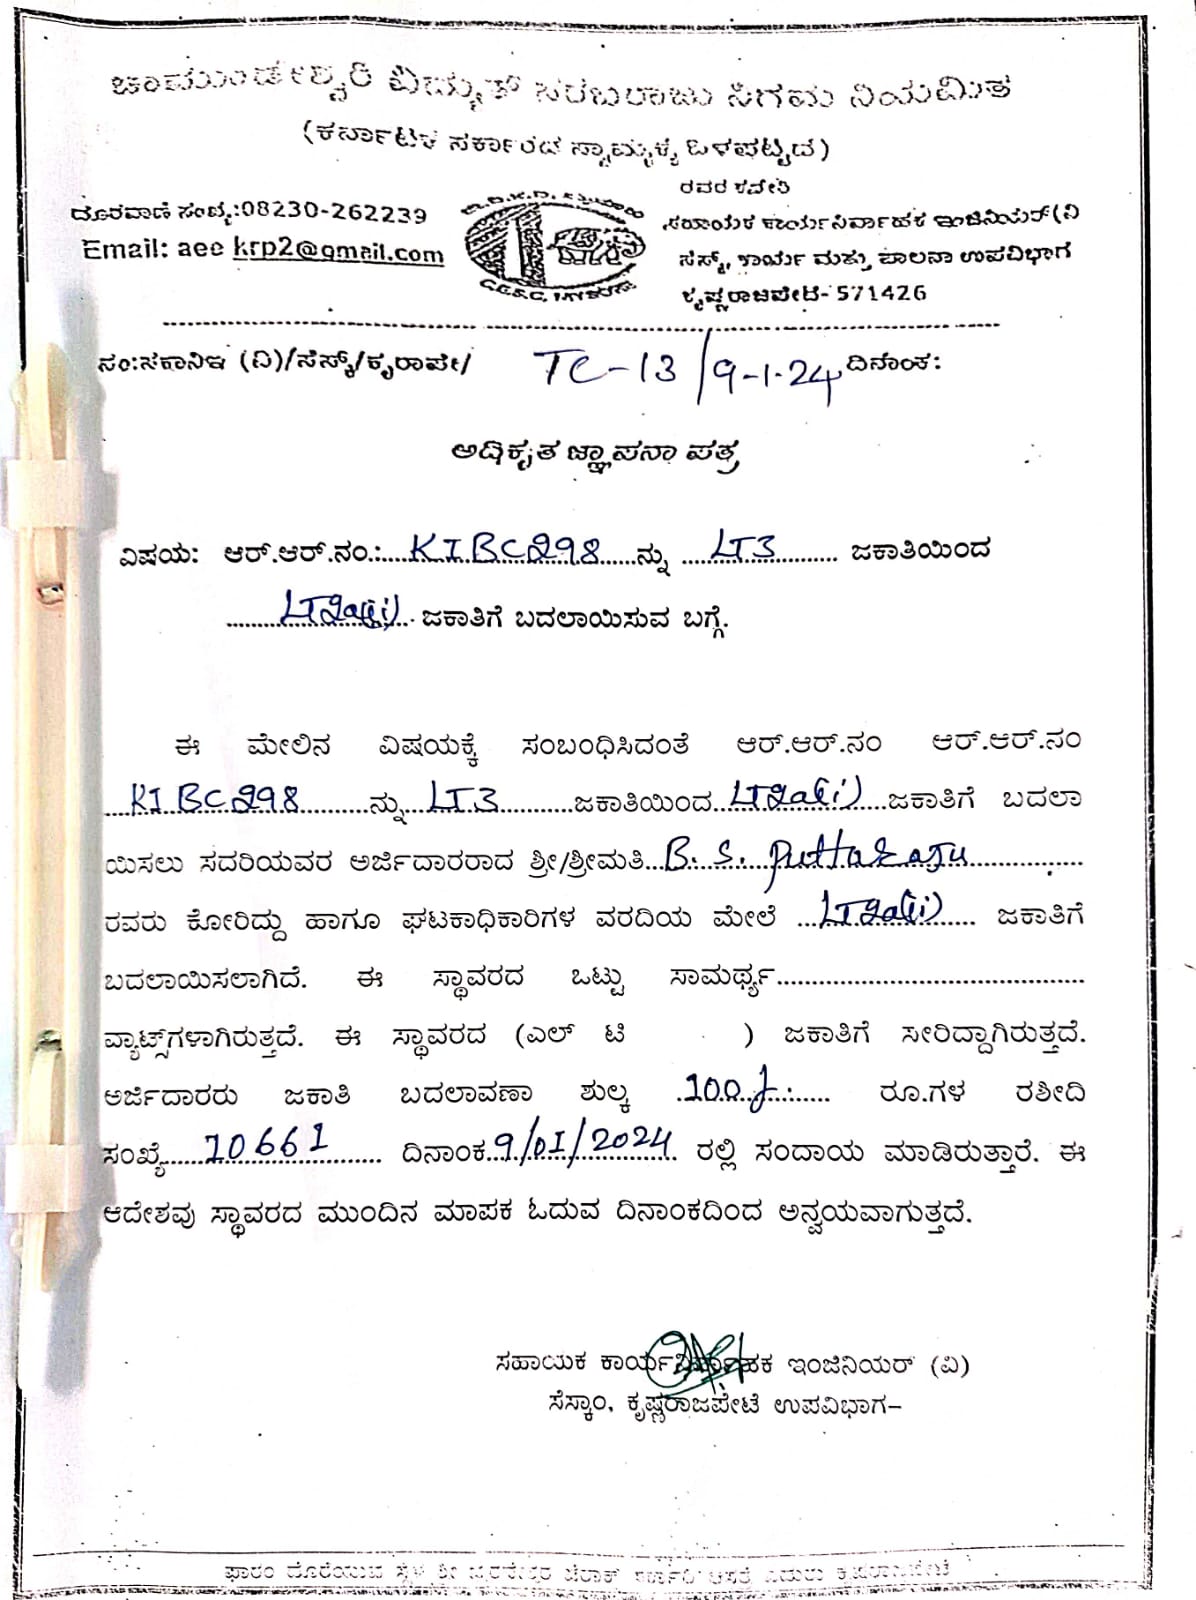 ಚಾಮುಂಡೇಶ್ವರಿ ವಿದ್ಯುತ್ ಸರಬರಾಜು ನಿಗಮ ನಿಯಮಿತ
(ಕರ್ನಾಟಕ ಸರ್ಕಾರದ ಸ್ವಾಮ್ಯಕ್ಕೆ ಒಳಪಟ್ಟಿದೆ)
ರವರ ಕಛೇರಿ
ದೂರವಾಣಿ ಸಂಖ್ಯೆ:08230-262239
ಸಹಾಯಕ ಕಾರ್ಯನಿರ್ವಾಹಕ ಇಂಜಿನಿಯರ್(ವಿ
Email: aee krp2@gmail.com
ಸೆಸ್ಕ್, ಕಾರ್ಯ ಮತ್ತು ಪಾಲನಾ ಉಪವಿಭಾಗ
ಕೃಷ್ಣರಾಜಪೇಟೆ- 571426
ಸಂ:ಸಕಾನಿಇ (ವಿ)/ಸೆಸ್ಕ್/ಕೃರಾಪೇ/ TC-13/9-1-24 ದಿನಾಂಕ:
ಅಧಿಕೃತ ಜ್ಞಾಪನಾ ಪತ್ರ
ವಿಷಯ: ಆರ್.ಆರ್.ನಂ.:....KIBC298.....ನ್ನು ....LT3.......... ಜಕಾತಿಯಿಂದ
.........LT2a(i).... ಜಕಾತಿಗೆ ಬದಲಾಯಿಸುವ ಬಗ್ಗೆ.
ಈ ಮೇಲಿನ ವಿಷಯಕ್ಕೆ ಸಂಬಂಧಿಸಿದಂತೆ ಆರ್.ಆರ್.ನಂ ಆರ್.ಆರ್.ನಂ
...KIBC298..........ನ್ನು...LT3...........ಜಕಾತಿಯಿಂದ..LT2a(i)....ಜಕಾತಿಗೆ ಬದಲಾ
ಯಿಸಲು ಸದರಿಯವರ ಅರ್ಜಿದಾರರಾದ ಶ್ರೀ/ಶ್ರೀಮತಿ...B. S. Puttaraju..............
ರವರು ಕೋರಿದ್ದು ಹಾಗೂ ಘಟಕಾಧಿಕಾರಿಗಳ ವರದಿಯ ಮೇಲೆ ...LT2a(i)..... ಜಕಾತಿಗೆ
ಬದಲಾಯಿಸಲಾಗಿದೆ. ಈ ಸ್ಥಾವರದ ಒಟ್ಟು ಸಾಮರ್ಥ್ಯ..........................................
ವ್ಯಾಟ್ಸ್‌ಗಳಾಗಿರುತ್ತದೆ. ಈ ಸ್ಥಾವರದ (ಎಲ್ ಟಿ ) ಜಕಾತಿಗೆ ಸೇರಿದ್ದಾಗಿರುತ್ತದೆ.
ಅರ್ಜಿದಾರರು ಜಕಾತಿ ಬದಲಾವಣಾ ಶುಲ್ಕ .100/-..... ರೂ.ಗಳ ರಶೀದಿ
ಸಂಖ್ಯೆ......10661....... ದಿನಾಂಕ..9/01/2024 ರಲ್ಲಿ ಸಂದಾಯ ಮಾಡಿರುತ್ತಾರೆ. ಈ
ಆದೇಶವು ಸ್ಥಾವರದ ಮುಂದಿನ ಮಾಪಕ ಓದುವ ದಿನಾಂಕದಿಂದ ಅನ್ವಯವಾಗುತ್ತದೆ.
ಸಹಾಯಕ ಕಾರ್ಯನಿರ್ವಾಹಕ ಇಂಜಿನಿಯರ್ (ವಿ)
ಸೆಸ್ಕಾಂ, ಕೃಷ್ಣರಾಜಪೇಟೆ ಉಪವಿಭಾಗ–
ಫಾರಂ ದೊರೆಯುವ ಸ್ಥಳ ಶ್ರೀ